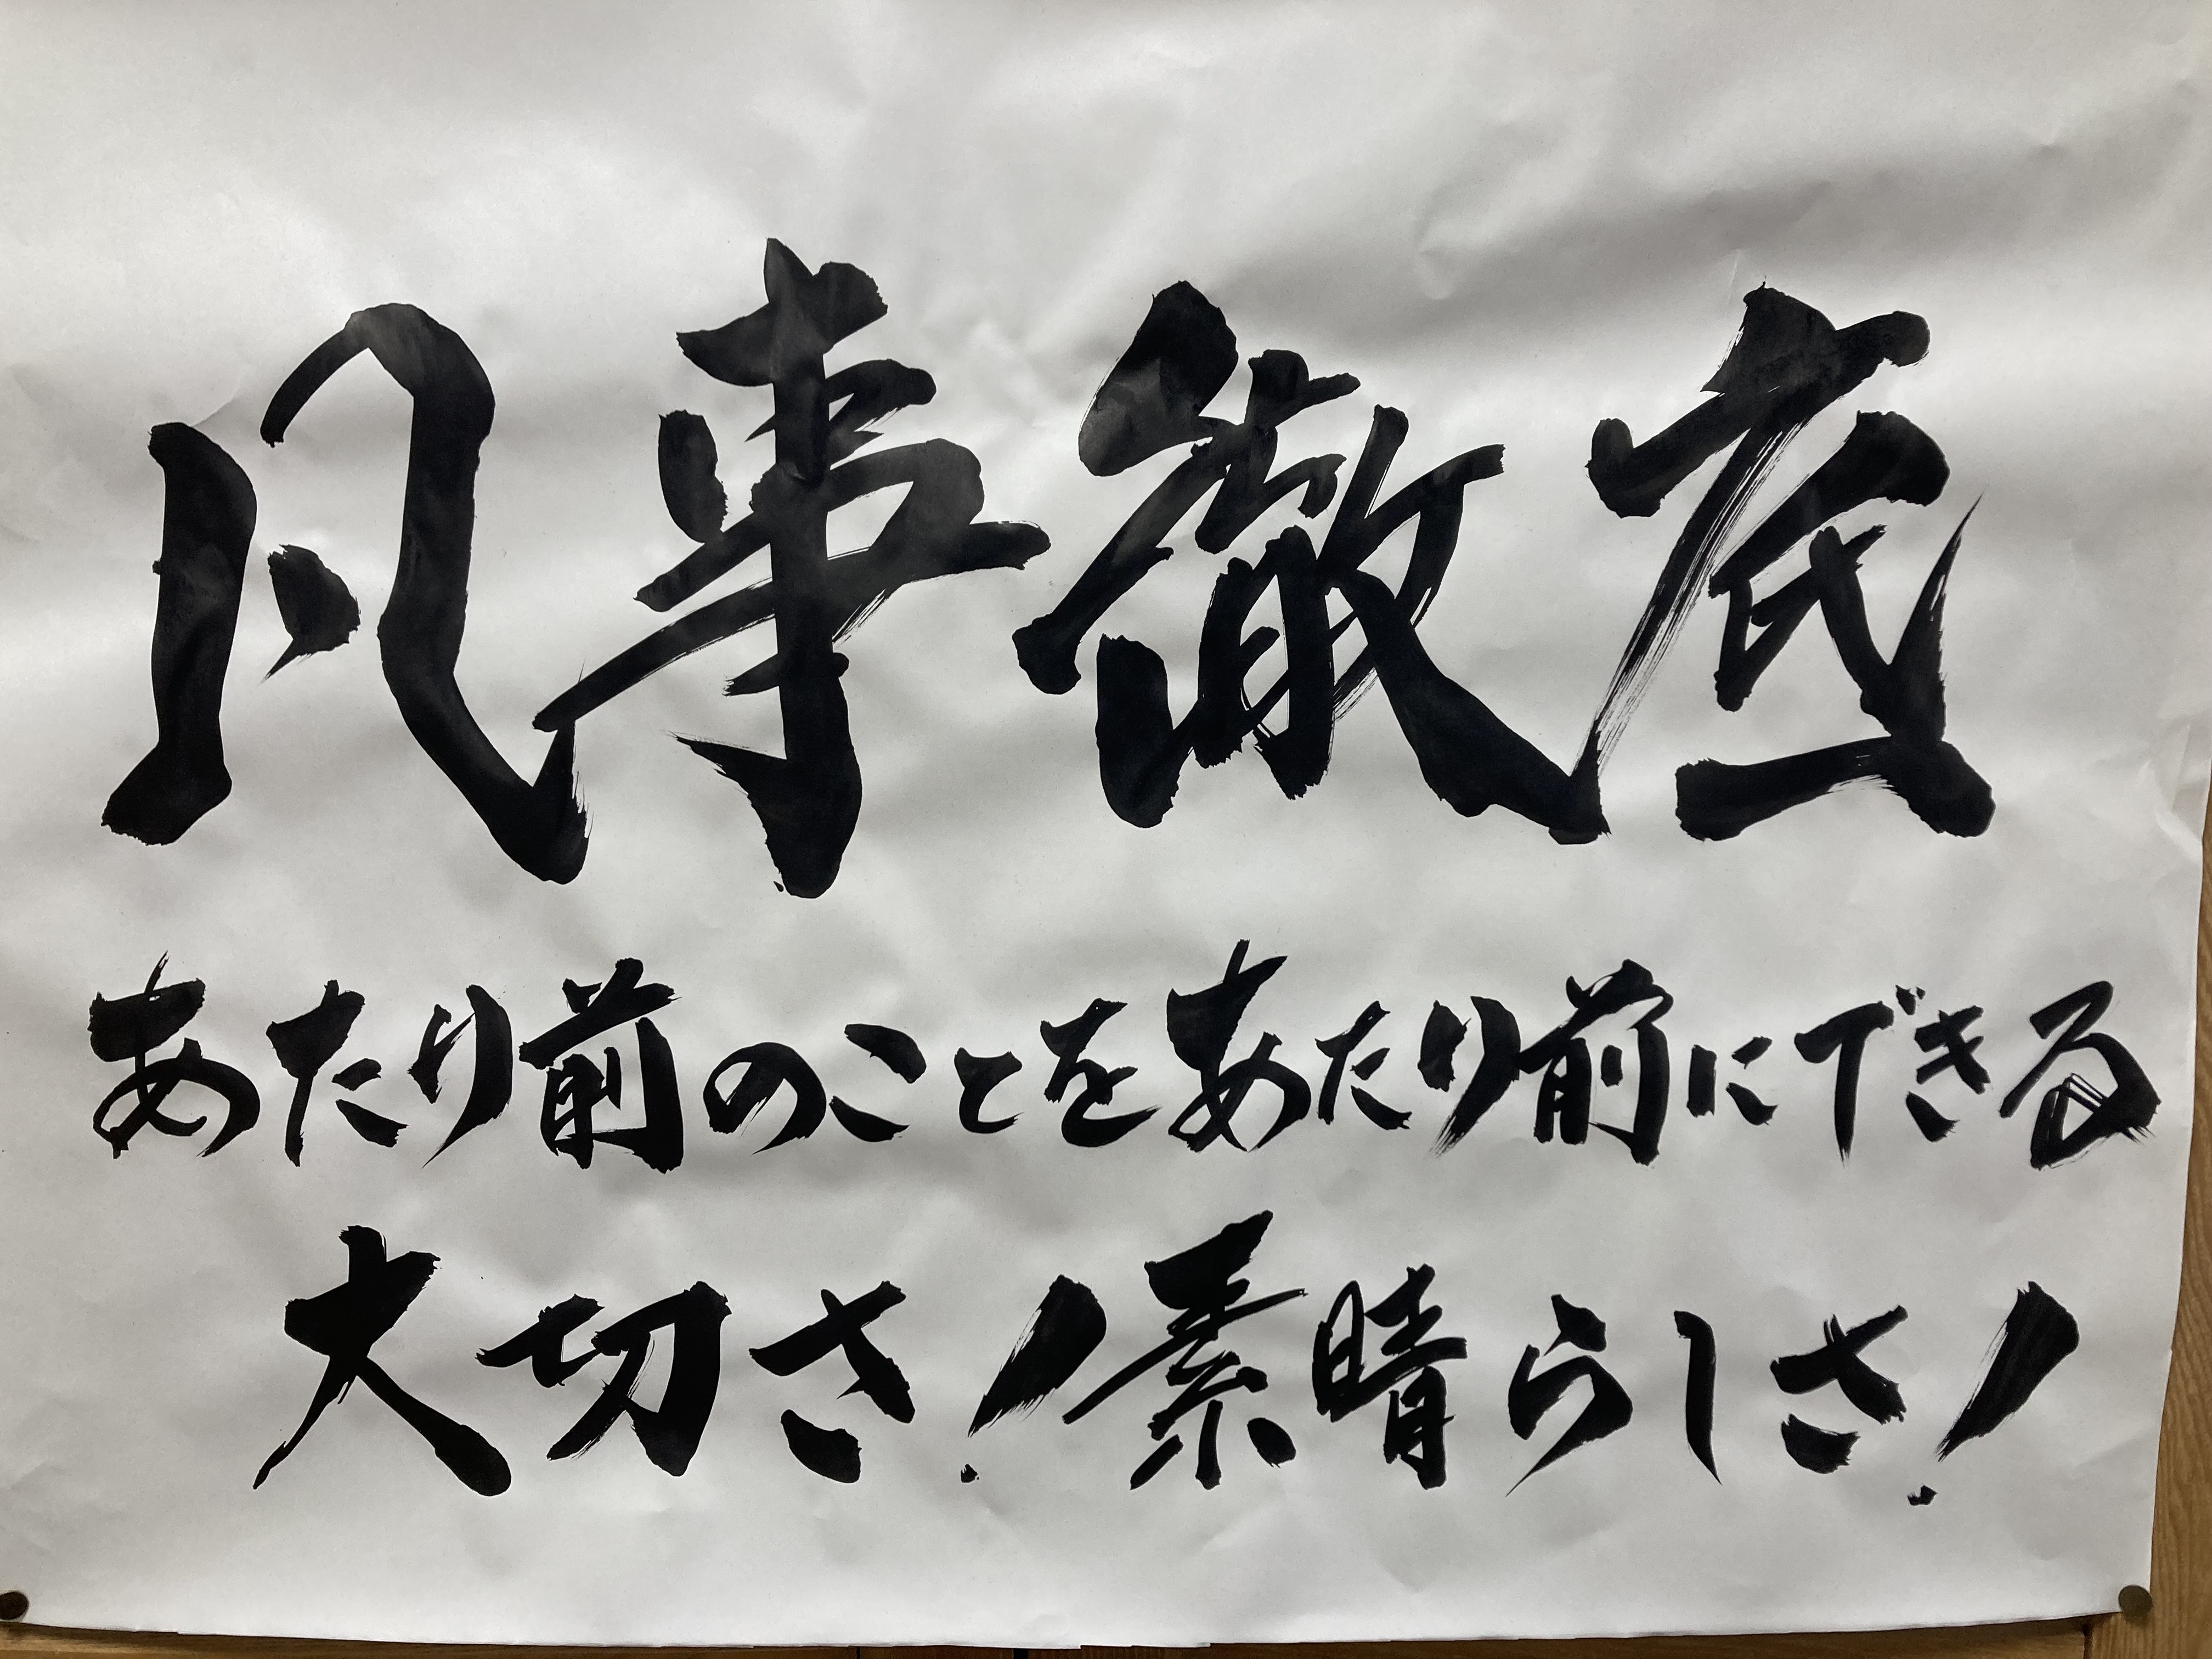 凡事徹底
あたり前のことをあたり前にできる
大切さ!素晴らしさ!